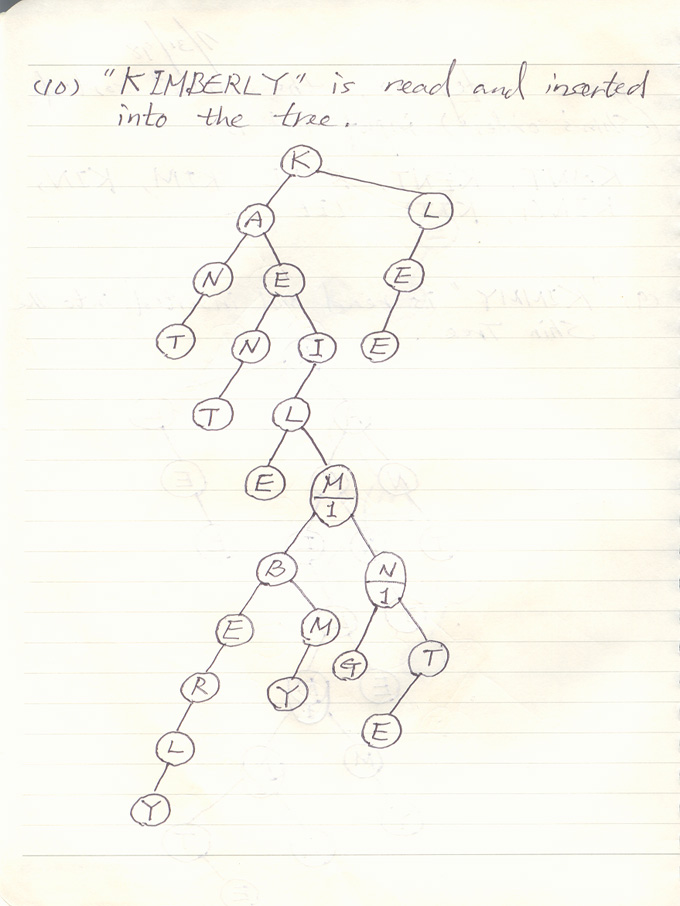 (10) "KIMBERLY" is read and inserted
into the tree.
K
A L
N E E
T N I E
T L
E M
1
B N
1
E M G T
R Y E
L
Y